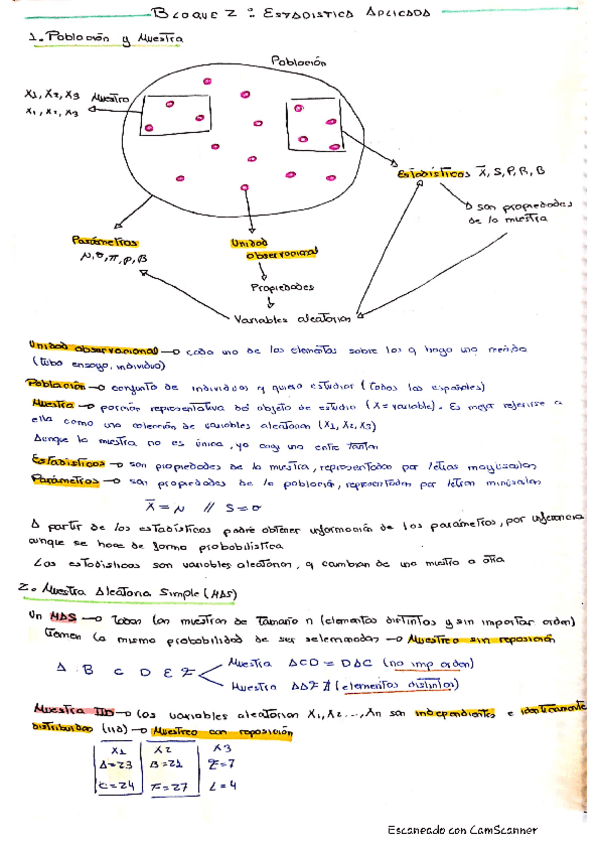 BLOQUE 2: ESTADISTICA APLICADA
1. Población y Muestra
Población
X1, X2, X3 Muestra
x1, x2, x3
Estadísticos X̄, S, P, R, B
son propiedades
de la muestra
Parámetros
μ, σ, π, ρ, β
Unidad
observacional
Propiedades
Variables aleatorias
Unidad observacional → cada uno de los elementos sobre los q hago una medida
(tubo ensayo, individuo)
Población → conjunto de individuos q quiero estudiar (todos los españoles)
Muestra → porción representativa del objeto de estudio (X = variable). Es mejor referirse a
ella como una colección de variables aleatorias (X1, X2, X3)
Aunque la muestra no es única, yo cojo una entre tantas
Estadísticos → son propiedades de la muestra, representados por letras mayúsculas
Parámetros → son propiedades de la población, representados por letras minúsculas
X̄ = μ // S = σ
A partir de los estadísticos podré obtener información de los parámetros, por inferencia
aunque se hace de forma probabilística
Los estadísticos son variables aleatorias, q cambian de una muestra a otra
2. Muestra Aleatoria Simple (MAS)
Un MAS → todas las muestras de tamaño n (elementos distintos y sin importar orden)
tienen la misma probabilidad de ser seleccionadas → Muestreo sin reposición
A B C D E F
Muestra ACD = DAC (no imp orden)
Muestra AAF ∄ (elementos distintos)
Muestra IID → los variables aleatorias X1, X2 ..., Xn son independientes e idénticamente
distribuidas (IID) → Muestreo con reposición
X1 X2 X3
A=23 B=21 Z=7
C=24 F=27 L=4
Escaneado con CamScanner